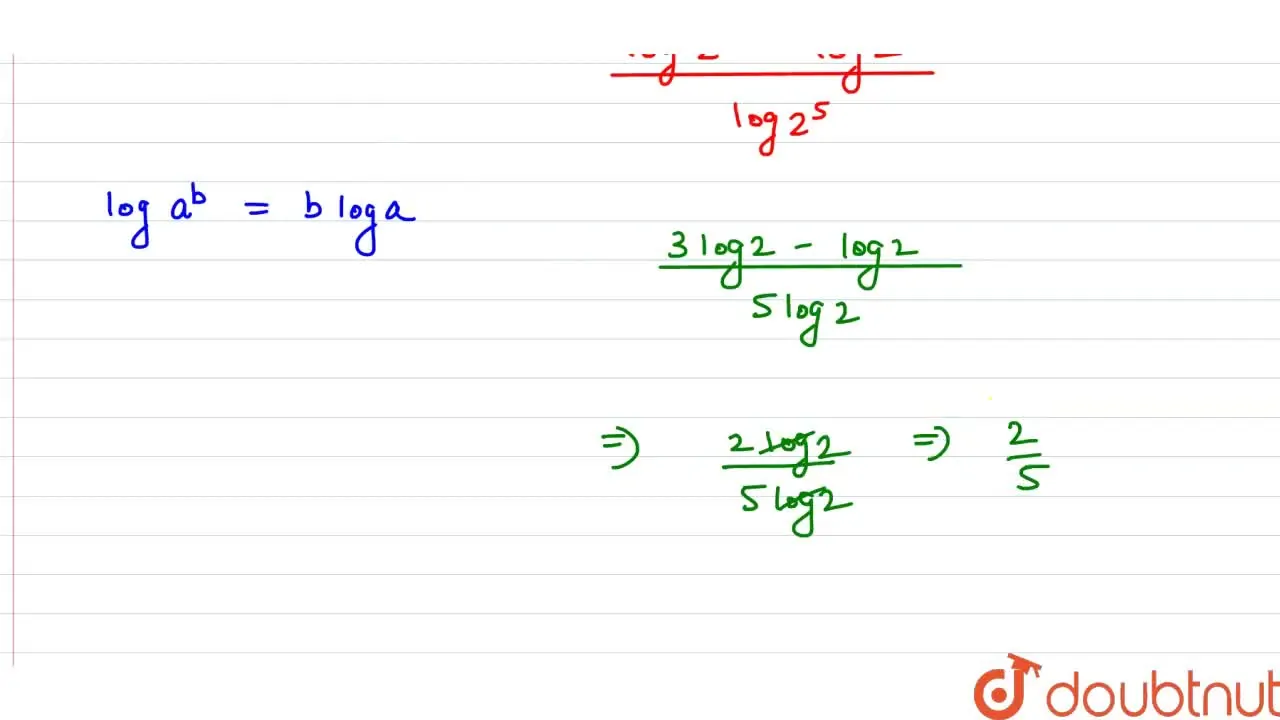 log 2⁵
log aᵇ = b log a
3 log 2 - log 2
5 log 2
=> 2 log 2 => 2
5 log 2 5
doubtnut